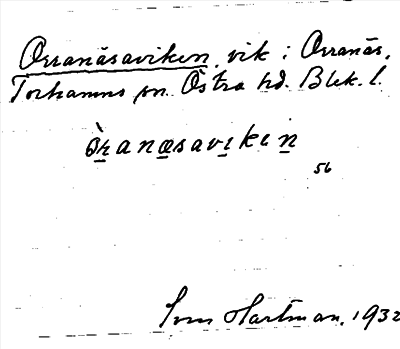 Orranäsaviken, vik i Orranäs,
Torhamns sn. Östra hd. Blek. l.
ὸʀanæsavikin
56
Sven Hartman. 1932